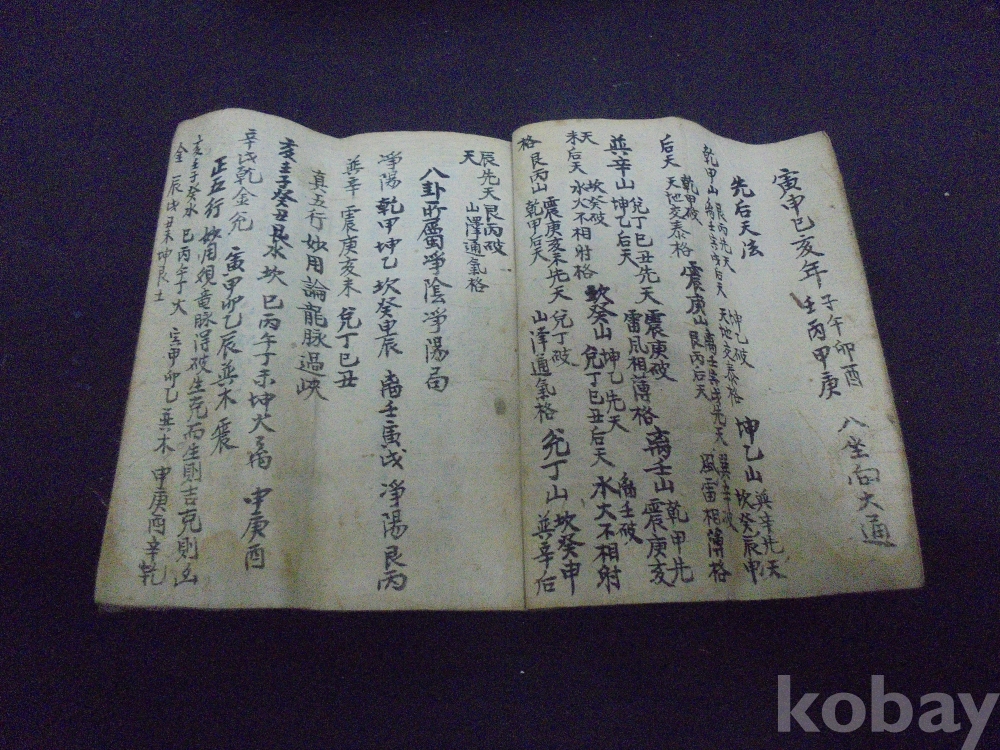 寅申巳亥年 子午卯酉 壬丙甲庚 八坐向大通
先后天法 坤乙破 天地交泰格 坤乙山 巽辛先天 坎癸辰申
乾甲山 艮丙先天 离壬寅戌后天 天地交泰格 离壬寅戌先天 巽辛破 風雷相薄格
后天 乾甲破 天地交泰格 震庚山 艮丙后天 离壬山 乾甲先 震庚亥
巽辛山 兌丁巳丑先天 坤乙后天 震庚破 雷風相薄格
未后天 坎癸破 水火不相射格 坎癸山 坤乙先天 兌丁巳丑后天 离壬破 水火不相射
格 艮丙山 震庚亥未先天 乾甲后天 兌丁破 山澤通氣格 兌丁山 坎癸申 巽辛后
辰先天 艮丙破
天 山澤通氣格
八卦所屬淨陰淨陽局
淨陽 乾甲坤乙 坎癸申辰 离壬寅戌 淨陽艮丙
巽辛 震庚亥未 兌丁巳丑
真五行妙用論龍脉過峽
亥壬子癸丑艮水坎 巳丙午丁未坤火离 申庚酉
辛戌乾金兌 寅甲卯乙辰巽木震
正五行妙用 覌竜脉得破生克而生則吉克則凶
亥壬子癸水 巳丙午丁火 寅甲卯乙巽木 申庚酉辛乾
金 辰戌丑未坤艮土
kobay